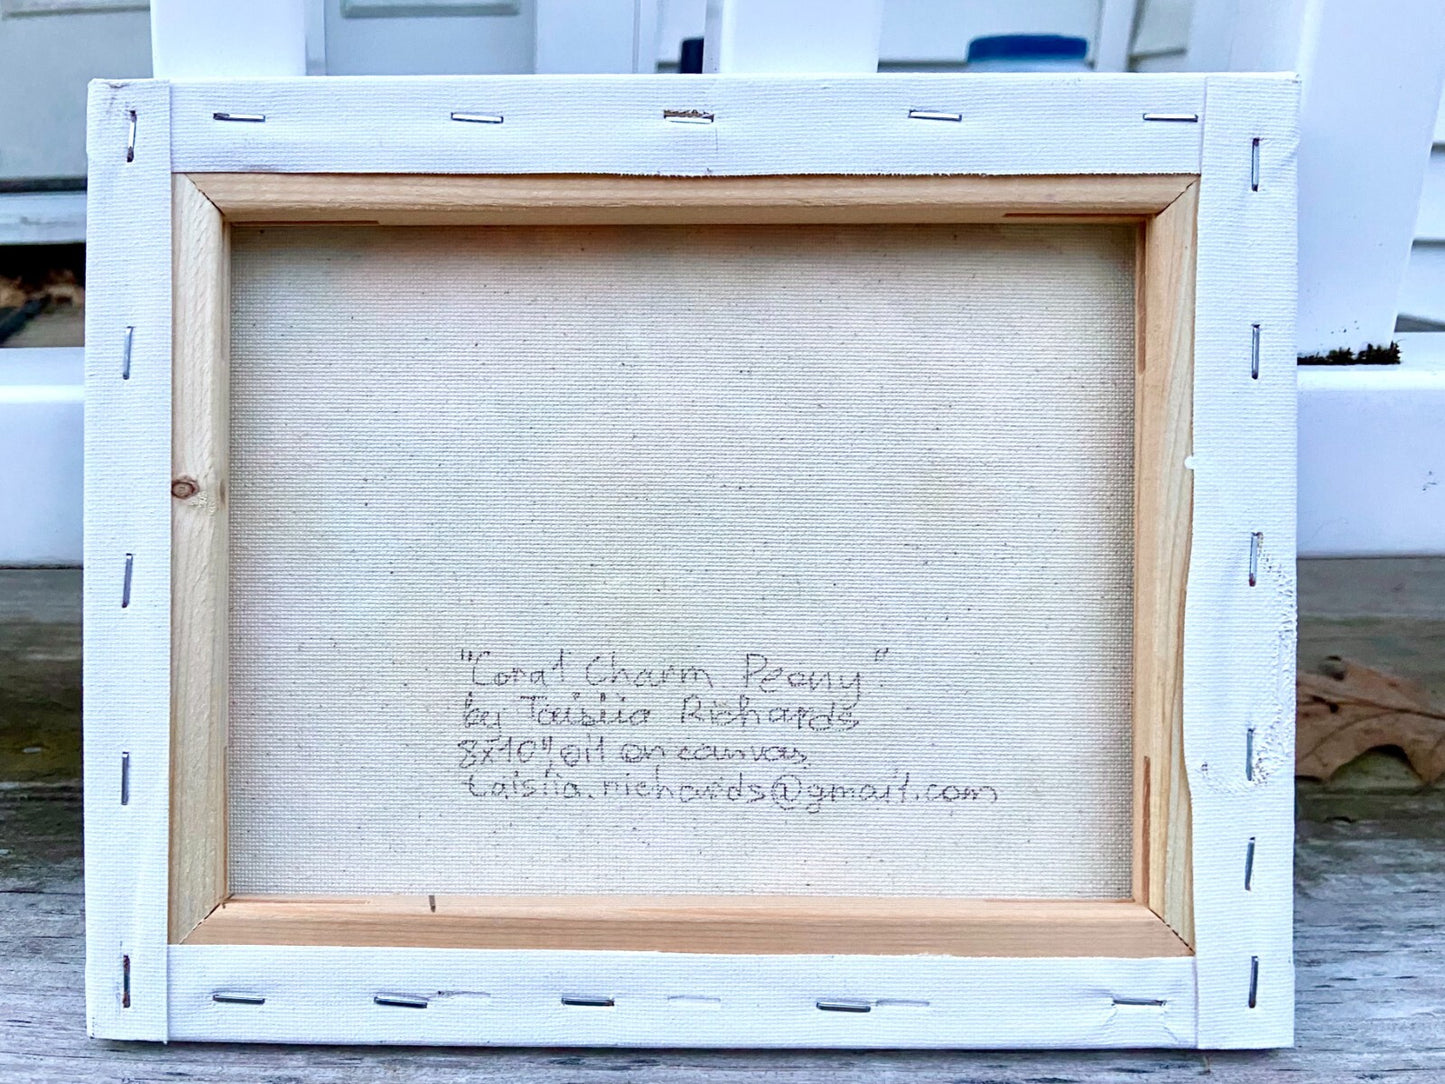 "Coral Charm Peony"
by Taisiia Richards
8x10" oil on canvas
taisiia.richards@gmail.com